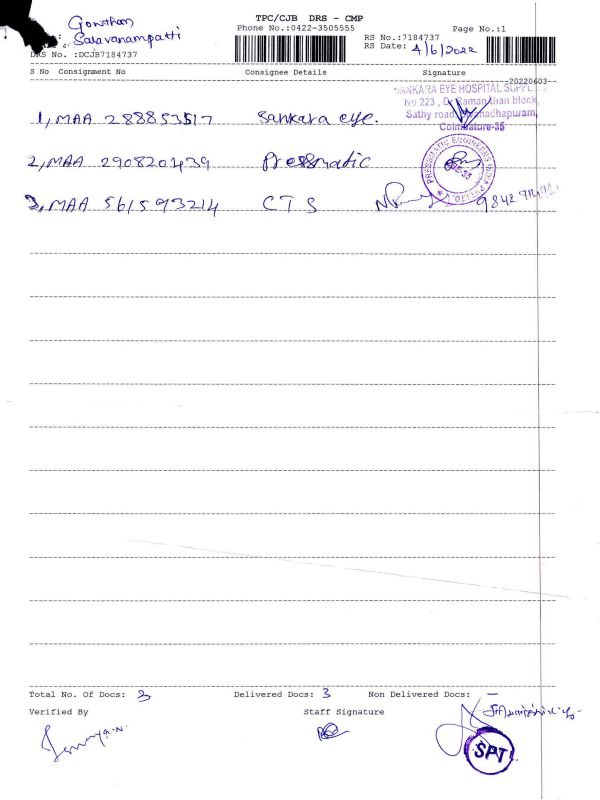 TPC/CJB DRS - CMP
Gowtham
Phone No.:0422-3505555
Page No.:1
RS No.:7184737
Saravanampatti
RS Date: 4/6/2022
DRS No. :DCJB7184737
S No Consignment No Consignee Details Signature
20220603
SANKARA EYE HOSPITAL
No 223, block,
Sathy road,
Coimbatore-35
1, MAA 288853517 Sankara eye.
2, MAA 290820439 Pressmatic
PRESSMATIC ENGINEERS INDIA
CBE-35
3, MAA 561593214 CTS 9842
Total No. Of Docs: 3 Delivered Docs: 3 Non Delivered Docs: —
Verified By Staff Signature
SPT